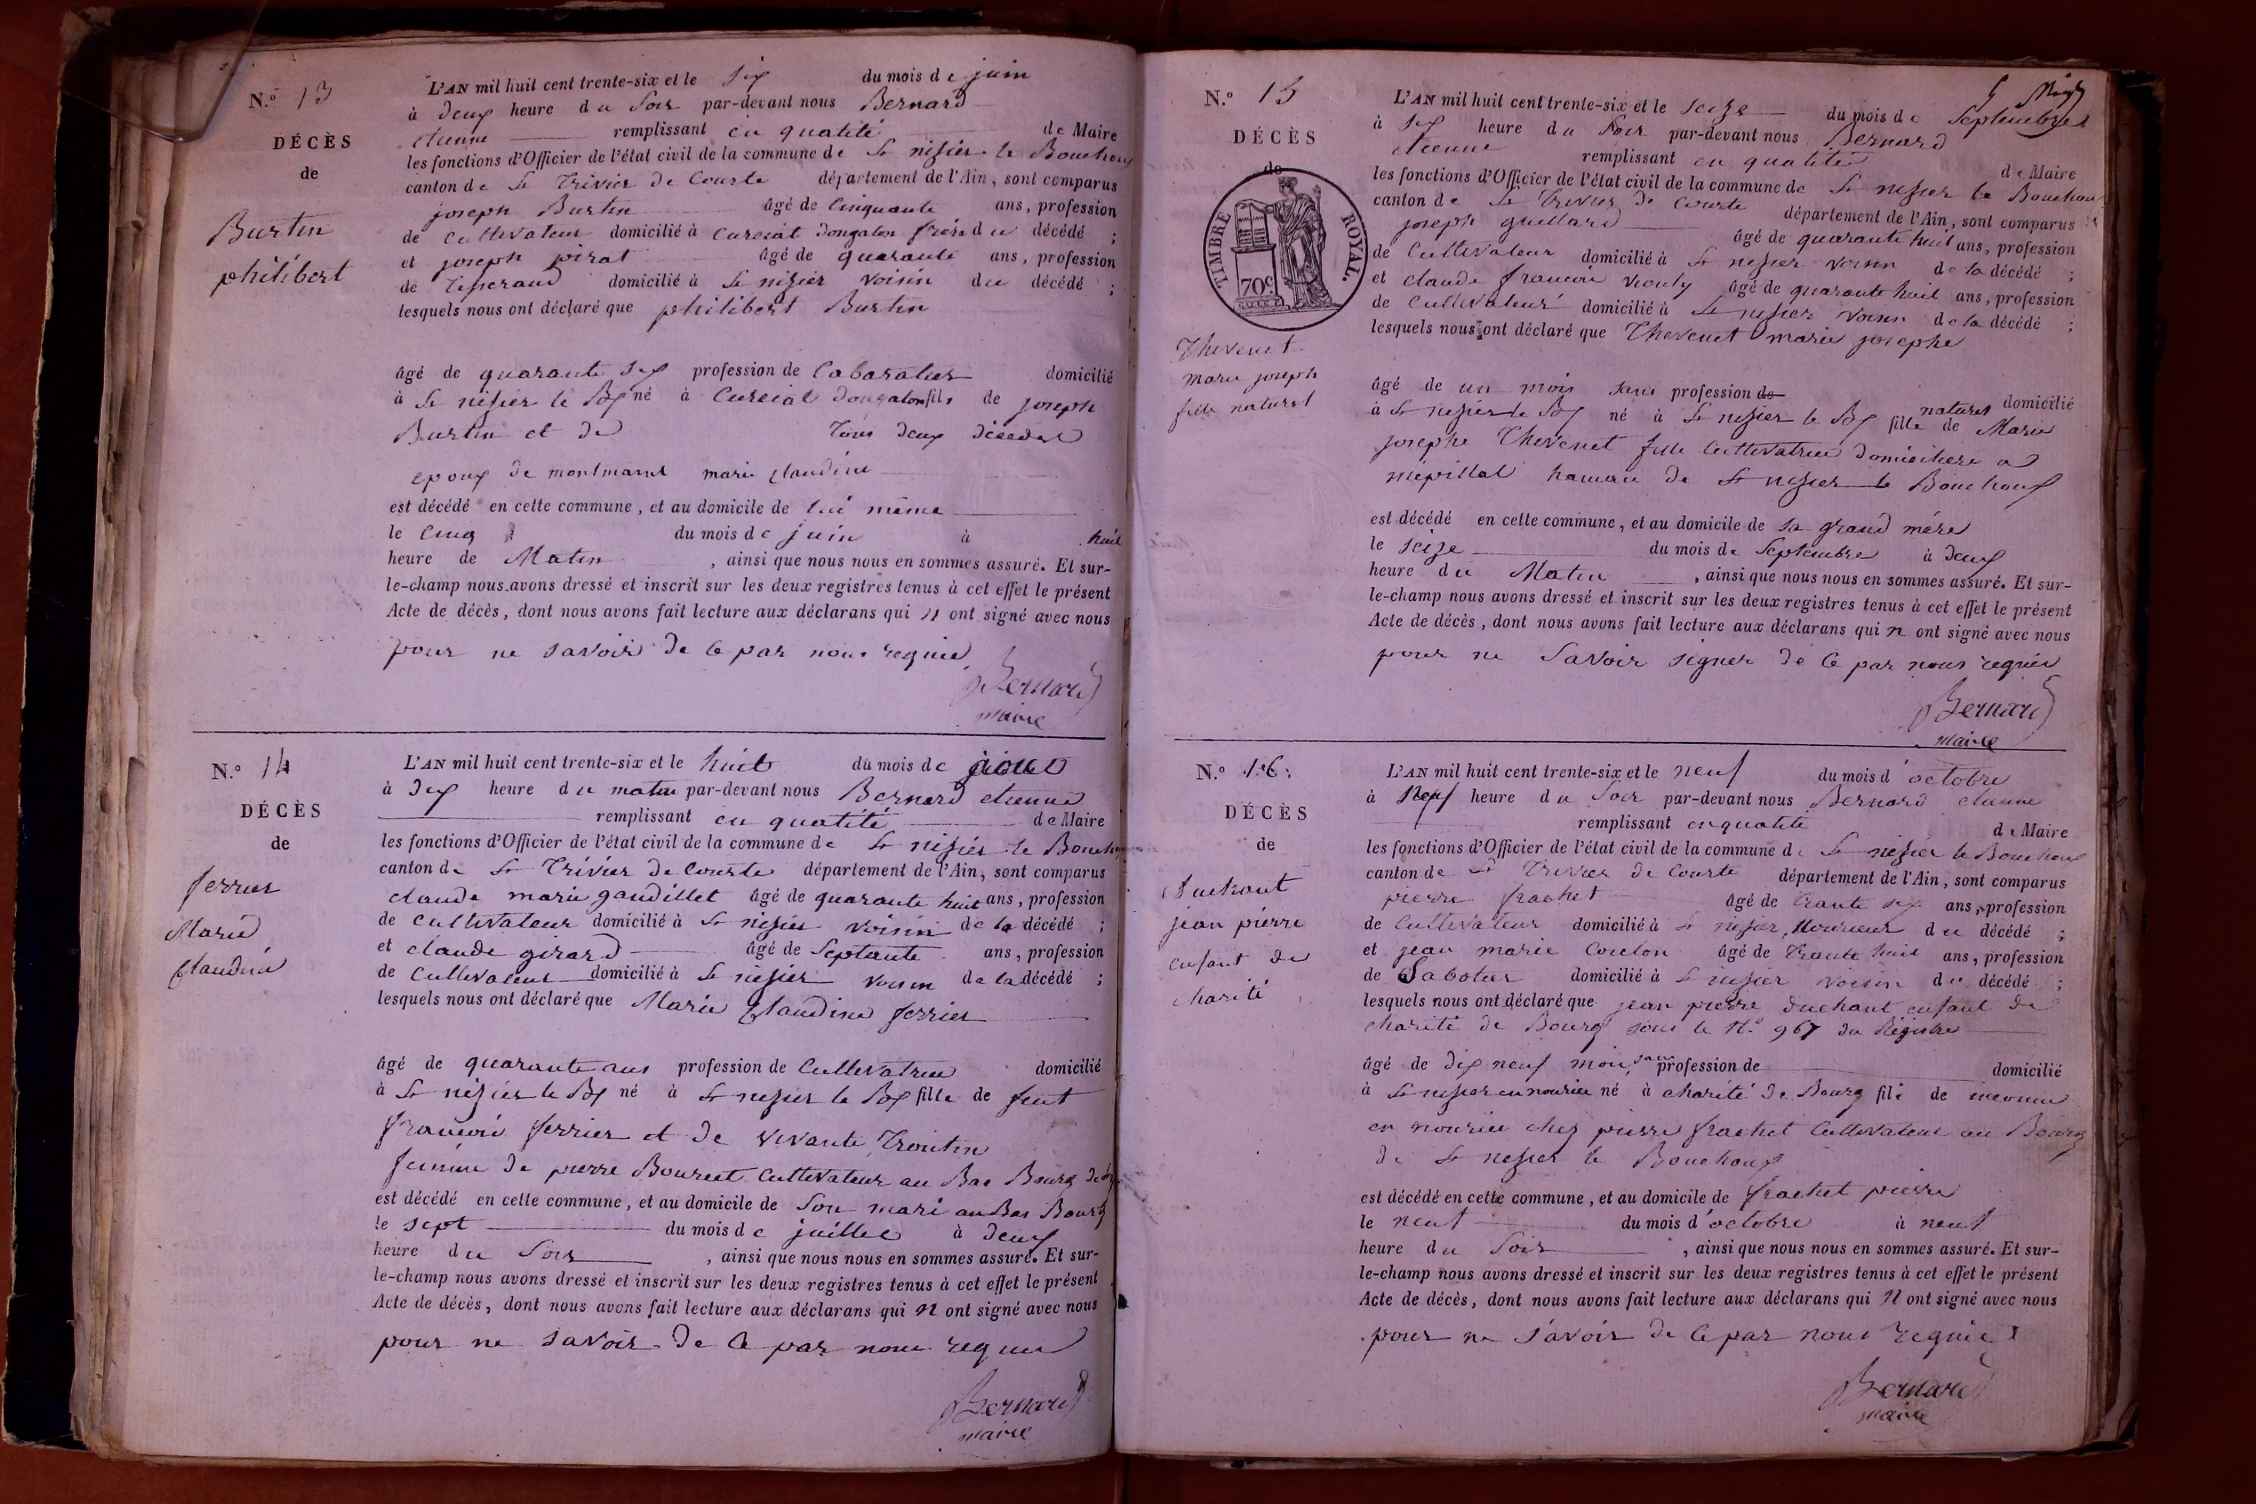 N.º 13
DÉCÈS
de
Burtin
philibert
L'AN mil huit cent trente-six et le six du mois de juin
à deux heure du soir par-devant nous Bernard
etienne remplissant en qualité de Maire
les fonctions d'Officier de l'état civil de la commune de St nizier le Bouchoux
canton de St Trivier de Courte département de l'Ain, sont comparus
joseph Burtin âgé de Cinquante ans, profession
de Cultivateur domicilié à Curciat dongalon frère du décédé ;
et joseph pirat âgé de quarante ans, profession
de domicilié à St nizier voisin du décédé ;
lesquels nous ont déclaré que philibert Burtin
âgé de quarante six profession de Cabaratier domicilié
à St nizier le Bx né à Curciat dongalon fils de joseph
Burtin et de tous deux décédés
epoux de montmaret marie claudine
est décédé en cette commune, et au domicile de lui même
le Cinq du mois de juin à huit
heure de Matin, ainsi que nous nous en sommes assuré. Et sur-
le-champ nous avons dressé et inscrit sur les deux registres tenus à cet effet le présent
Acte de décès, dont nous avons fait lecture aux déclarans qui n ont signé avec nous
pour ne savoir de ce par nous requie
Bernard
maire
N.º 14
DÉCÈS
de
ferrier
Marie
Claudine
L'AN mil huit cent trente-six et le huit du mois de
à dix heure du matin par-devant nous Bernard etienne
remplissant en qualité de Maire
les fonctions d'Officier de l'état civil de la commune de St nizier le Bouchoux
canton de St Trivier de Courte département de l'Ain, sont comparus
claude marie gaudillet âgé de quarante huit ans, profession
de Cultivateur domicilié à St nizier voisin de la décédé ;
et claude girard âgé de Septante ans, profession
de Cultivateur domicilié à St nizier voisin de la décédé ;
lesquels nous ont déclaré que Marie Claudine ferrier
âgé de quarante ans profession de Cultivatrice domicilié
à St nizier le Bx né à St nizier le Bx fille de feut
françois ferrier et de vivante Trontin
femme de pierre Bouruet Cultivateur au Bas Bourg de
est décédé en cette commune, et au domicile de son mari au Bas Bourg
le sept du mois de juillet à deux
heure du Soir, ainsi que nous nous en sommes assuré. Et sur-
le-champ nous avons dressé et inscrit sur les deux registres tenus à cet effet le présent
Acte de décès, dont nous avons fait lecture aux déclarans qui n ont signé avec nous
pour ne savoir de ce par nous requie
Bernard
maire
N.º 15
DÉCÈS
de
TIMBRE ROYAL.
70c
Thevenet
marie joseph
fille naturel
L'AN mil huit cent trente-six et le seize du mois de Septembre
à six heure du Soir par-devant nous Bernard
etienne remplissant en qualité de Maire
les fonctions d'Officier de l'état civil de la commune de St nizier le Bouchoux
canton de St Trivier de Courte département de l'Ain, sont comparus
joseph guillard âgé de quarante huit ans, profession
de Cultivateur domicilié à St nizier voisin de la décédé ;
et claude françois vieuly âgé de quarante huit ans, profession
de Cultivateur domicilié à St nizier voisin de la décédé ;
lesquels nous ont déclaré que Thevenet marie josephe
âgé de un mois sans profession de domicilié
à St nizier le Bx né à St nizier le Bx fille naturel de Marie
josephe Thevenet fille Cultivatrice domiciliere a
mépillat hamau de St nizier le Bouchoux
est décédé en cette commune, et au domicile de sa grand mére
le seize du mois de Septembre à deux
heure du Matin, ainsi que nous nous en sommes assuré. Et sur-
le-champ nous avons dressé et inscrit sur les deux registres tenus à cet effet le présent
Acte de décès, dont nous avons fait lecture aux déclarans qui n ont signé avec nous
pour ne savoir signer de ce par nous requie
Bernard
maire
N.º 16
DÉCÈS
de
Duchant
jean pierre
enfant de
charité
L'AN mil huit cent trente-six et le neuf du mois d'octobre
à Neuf heure du Soir par-devant nous Bernard etienne
remplissant en qualité de Maire
les fonctions d'Officier de l'état civil de la commune de St nizier le Bouchoux
canton de St Trivier de Courte département de l'Ain, sont comparus
pierre frachet âgé de trante six ans, profession
de Cultivateur domicilié à St nizier, Nouricier du décédé ;
et jean marie Coulon âgé de trante huit ans, profession
de Sabotier domicilié à St nizier voisin du décédé ;
lesquels nous ont déclaré que jean pierre Duchant enfant de
charité de Bourg sous le N.º 967 du Régistre
âgé de dix neuf mois sans profession de domicilié
à St nizier en nourice né à charité de Bourg fils de inconnu
en nourice chez pierre frachet Cultivateur au Bourg
de St nizier le Bouchoux
est décédé en cette commune, et au domicile de frachet pierre
le neuf du mois d'octobre à neuf
heure du Soir, ainsi que nous nous en sommes assuré. Et sur-
le-champ nous avons dressé et inscrit sur les deux registres tenus à cet effet le présent
Acte de décès, dont nous avons fait lecture aux déclarans qui n ont signé avec nous
pour ne savoir de ce par nous requie
Bernard
maire